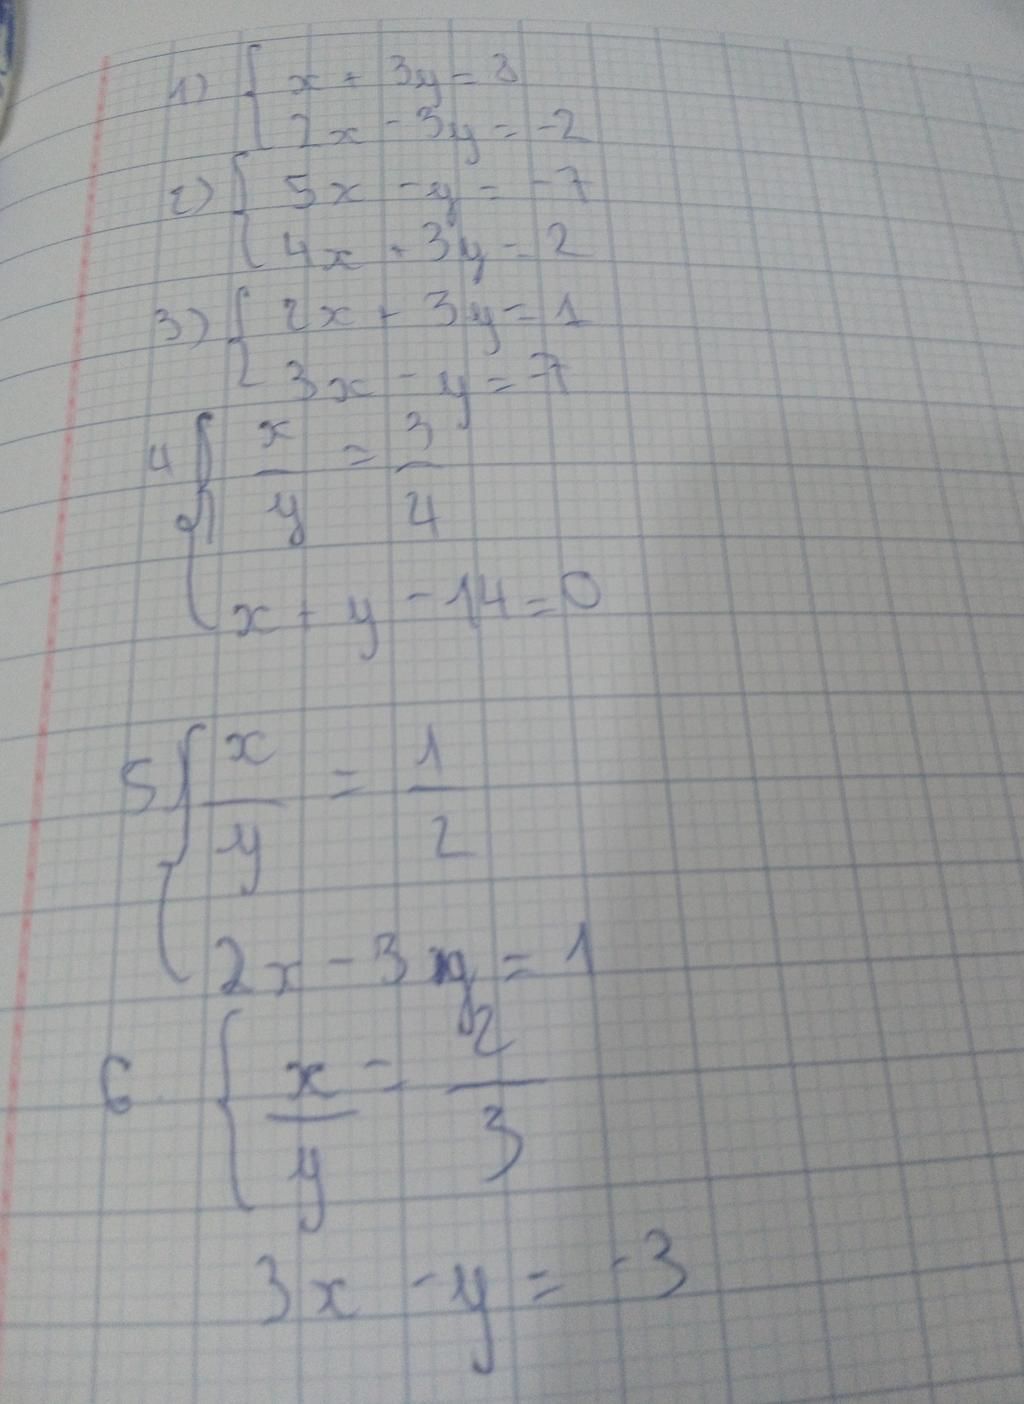 1) { x + 3y = 8
2x - 3y = -2
2) { 5x - y = -7
4x + 3y = 2
3) { 2x + 3y = 1
3x - y = -7
4 { x/y = 3/4
x + y - 14 = 0
5 { x/y = 1/2
2x - 3y = 1
6 { x/y = 2/3
3x - y = -3